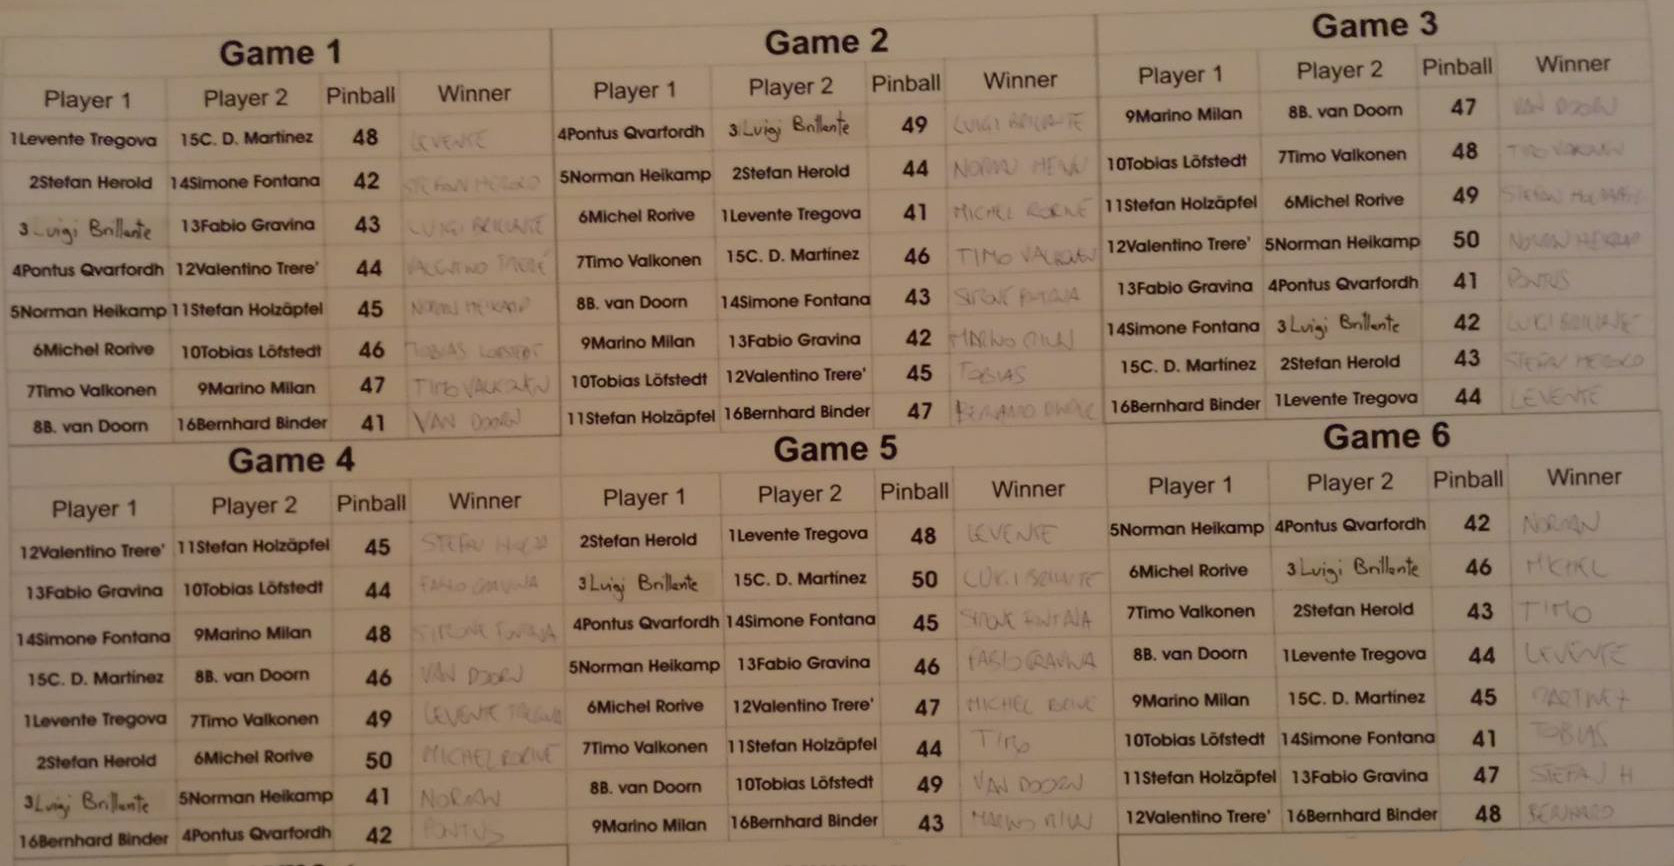 Game 1
Player 1 Player 2 Pinball Winner
1Levente Tregova 15C. D. Martinez 48 LEVENTE
2Stefan Herold 14Simone Fontana 42 STEFAN HEROLD
3 Luigi Brillante 13Fabio Gravina 43 LUIGI BRILLANTE
4Pontus Qvarfordh 12Valentino Trere' 44 VALENTINO TRERE'
5Norman Heikamp 11Stefan Holzäpfel 45 NORMAN HEIKAMP
6Michel Rorive 10Tobias Löfstedt 46 TOBIAS LOFSTEDT
7Timo Valkonen 9Marino Milan 47 TIMO VALKONEN
8B. van Doorn 16Bernhard Binder 41 VAN DOORN
Game 2
Player 1 Player 2 Pinball Winner
4Pontus Qvarfordh 3 Luigi Brillante 49 LUIGI BRILLANTE
5Norman Heikamp 2Stefan Herold 44 NORMAN
6Michel Rorive 1Levente Tregova 41 MICHEL RORIVE
7Timo Valkonen 15C. D. Martinez 46 TIMO VALKONEN
8B. van Doorn 14Simone Fontana 43 SIMONE FONTANA
9Marino Milan 13Fabio Gravina 42 MARINO MILAN
10Tobias Löfstedt 12Valentino Trere' 45 TOBIAS
11Stefan Holzäpfel 16Bernhard Binder 47
Game 3
Player 1 Player 2 Pinball Winner
9Marino Milan 8B. van Doorn 47 VAN DOORN
10Tobias Löfstedt 7Timo Valkonen 48 TIMO VALKONEN
11Stefan Holzäpfel 6Michel Rorive 49 STEFAN HOLZAPFEL
12Valentino Trere' 5Norman Heikamp 50 NORMAN HEIKAMP
13Fabio Gravina 4Pontus Qvarfordh 41 PONTUS
14Simone Fontana 3 Luigi Brillante 42 LUIGI BRILLANTE
15C. D. Martinez 2Stefan Herold 43 STEFAN HEROLD
16Bernhard Binder 1Levente Tregova 44 LEVENTE
Game 4
Player 1 Player 2 Pinball Winner
12Valentino Trere' 11Stefan Holzäpfel 45 STEFAN
13Fabio Gravina 10Tobias Löfstedt 44 FABIO GRAVINA
14Simone Fontana 9Marino Milan 48 SIMONE FONTANA
15C. D. Martinez 8B. van Doorn 46 VAN DOORN
1Levente Tregova 7Timo Valkonen 49 LEVENTE TREGOVA
2Stefan Herold 6Michel Rorive 50 MICHEL RORIVE
3 Luigi Brillante 5Norman Heikamp 41 NORMAN
16Bernhard Binder 4Pontus Qvarfordh 42 PONTUS
Game 5
Player 1 Player 2 Pinball Winner
2Stefan Herold 1Levente Tregova 48 LEVENTE
3 Luigi Brillante 15C. D. Martinez 50 LUIGI BRILLANTE
4Pontus Qvarfordh 14Simone Fontana 45 SIMONE FONTANA
5Norman Heikamp 13Fabio Gravina 46 FABIO GRAVINA
6Michel Rorive 12Valentino Trere' 47 MICHEL RORIVE
7Timo Valkonen 11Stefan Holzäpfel 44 TIMO
8B. van Doorn 10Tobias Löfstedt 49 VAN DOORN
9Marino Milan 16Bernhard Binder 43 MARINO MILAN
Game 6
Player 1 Player 2 Pinball Winner
5Norman Heikamp 4Pontus Qvarfordh 42 NORMAN
6Michel Rorive 3 Luigi Brillante 46 MICHEL
7Timo Valkonen 2Stefan Herold 43 TIMO
8B. van Doorn 1Levente Tregova 44 LEVENTE
9Marino Milan 15C. D. Martinez 45 MARTINEZ
10Tobias Löfstedt 14Simone Fontana 41 TOBIAS
11Stefan Holzäpfel 13Fabio Gravina 47 STEFAN H
12Valentino Trere' 16Bernhard Binder 48 BERNHARD